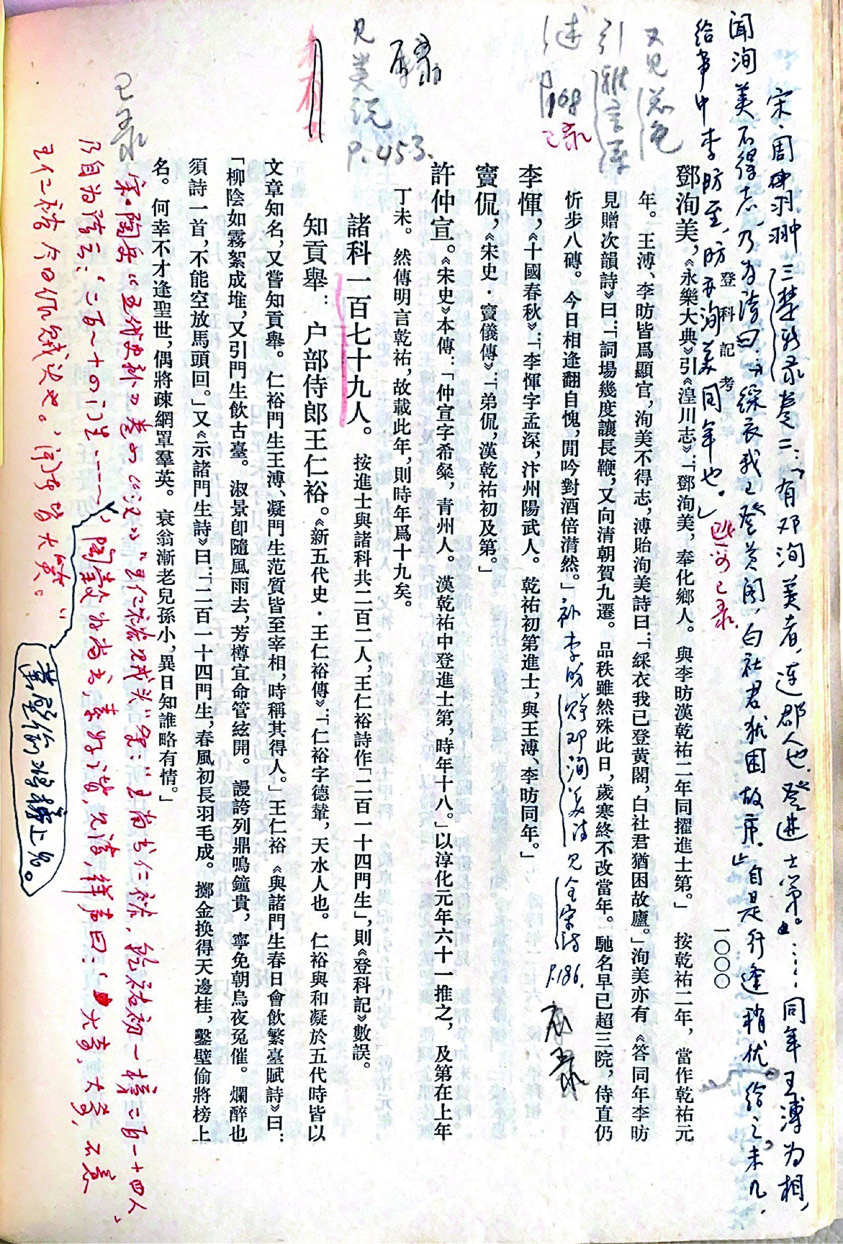 宋·周羽翀《三楚新录》卷二："有邓洵美者，连郡人也，登进士第。……同年王溥为相，
闻洵美不得志，乃为诗曰：'綵衣我已登黄阁，白社君犹困故庐'，自是行逢稍优给之。未几，
给事中李昉至，昉与洵美同年也。"
此等已录
登科記考
一〇〇〇
又见总龟
引雅言系述
P.168
已录
鄧洵美，《永樂大典》引《湟川志》：「鄧洵美，奉化鄉人。與李昉漢乾祐二年同擢進士第。」按乾祐二年，當作乾祐元
年。王溥、李昉皆爲顯官，洵美不得志，溥貽洵美詩曰：『綵衣我已登黄閣，白社君猶困故廬。』洵美亦有《答同年李昉
見贈次韻詩》曰：『詞場幾度讓長鞭，又向清朝賀九遷。品秩雖然殊此日，歲寒終不改當年。馳名早已超三院，侍直仍
忻步八磚。今日相逢翻自愧，閒吟對酒倍潸然。」
补李昉赠邓洵美诗见全宋诗P.186.
李惲，《十國春秋》：「李惲字孟深，汴州陽武人。乾祐初第進士，與王溥、李昉同年。」
竇侃，《宋史·竇儀傳》：「弟侃，漢乾祐初及第。」
許仲宣。《宋史》本傳：「仲宣字希粲，青州人。漢乾祐中登進士第，時年十八。」以淳化元年六十一推之，及第在上年
丁未。然傳明言乾祐，故載此年，則時年爲十九矣。
见类说
P.453.
諸科一百七十九人。按進士與諸科共二百二人，王仁裕詩作「二百一十四門生」，則《登科記》數誤。
知貢舉：户部侍郎王仁裕。《新五代史·王仁裕傳》：「仁裕字德輦，天水人也。仁裕與和凝於五代時皆以
文章知名，又嘗知貢舉。仁裕門生王溥、凝門生范质皆至宰相，時稱其得人。」王仁裕《與諸門生春日會飲繁臺賦詩》曰：
「柳陰如霧絮成堆，又引門生飲古臺。淑景即隨風雨去，芳樽宜命管絃開。謾誇列鼎鳴鐘貴，寧免朝烏夜兔催。爛醉也
須詩一首，不能空放馬頭回。」又《示諸門生詩》曰：「二百一十四門生，春風初長羽毛成。擲金換得天邊桂，鑿壁偷將榜上
名。何幸不才逢聖世，偶將疎網罩羣英。衰翁漸老兒孫小，異日知誰略有情。」
已录
宋·陶岳《五代史补》卷四"王仁裕贼头"条："王尚书仁裕，乾祐初一榜二百一十四人，
乃自为诗云：'二百一十四门生……'，陶穀为尚书，素好谐，见诗，佯声曰：'大奇，大奇，不意
王仁裕今日做贼头也。'闻者皆大笑。"
凿壁偷将榜上名。